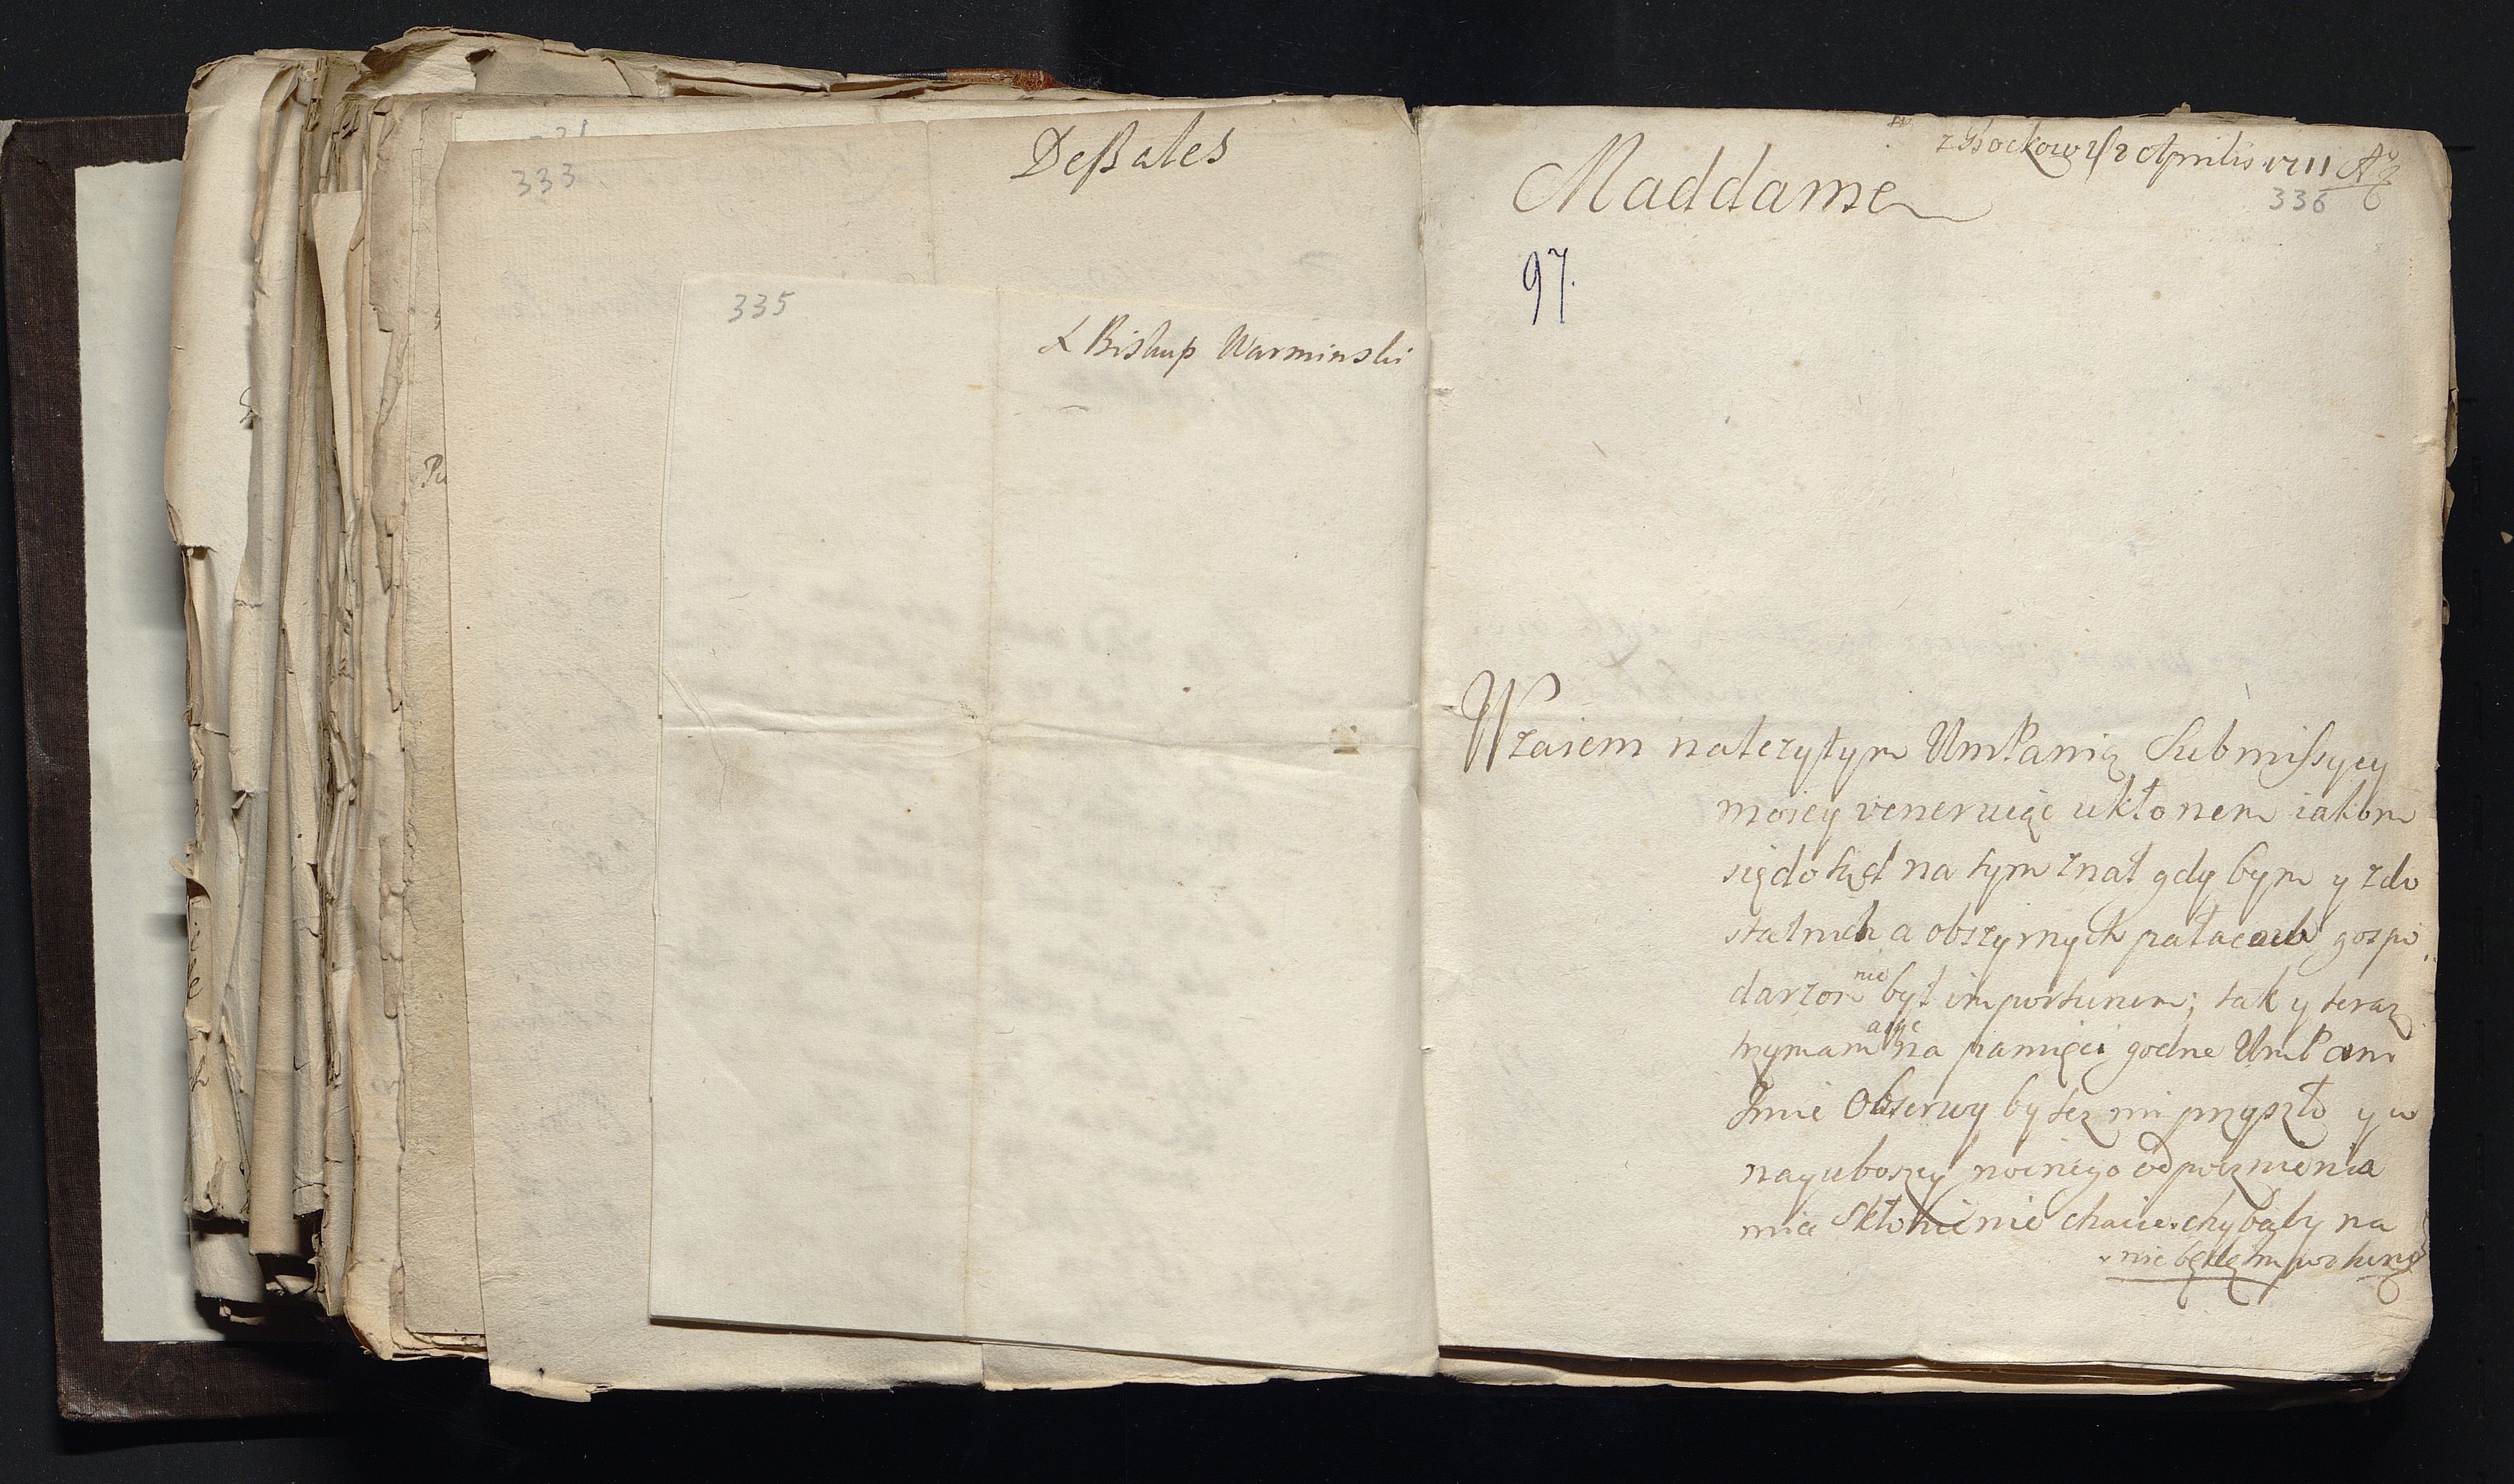 333
DeßAles
335
Ł Biskup Warminski
z Boćkow 2 Aprilis 1711
336
Maddame
97.
Wzaiem należytym WmPanią Submissyey
moiey veneruiąc ukłonem iakom
się dotąd na tym znał gdy bym y zdo
statnich a obszyrnych pałacow gospo
darzom nie był importunem; tak y teraz
trzymaiąc na pamięci godne WmPani
Imie Obserwy by tez mi przyszło y w
nayuboszey nocnego odpocznienia
mieć Skłonienie chacie chybaby na
nie będę importuną